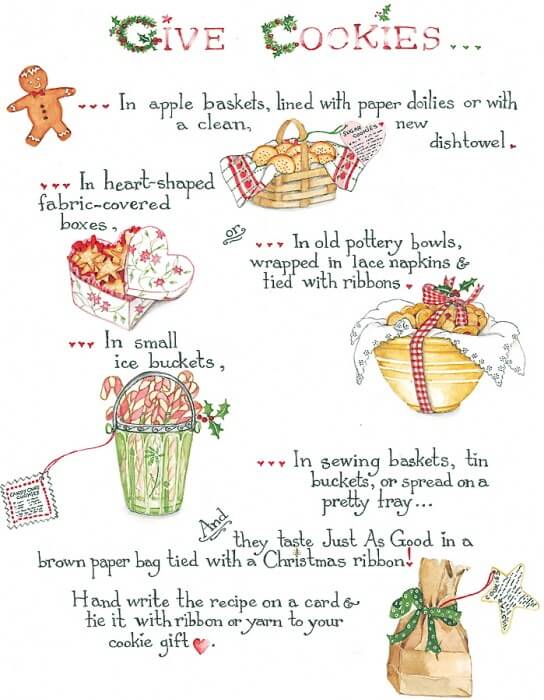 Give Cookies...
In apple baskets, lined with paper doilies or with
a clean, new
dishtowel.
SUGAR COOKIES
In heart-shaped
fabric-covered
boxes,
or
In old pottery bowls,
wrapped in lace napkins &
tied with ribbons
In small
ice buckets,
CANDY CANE
COOKIES
In sewing baskets, tin
buckets, or spread on a
pretty tray...
And
they taste Just As Good in a
brown paper bag tied with a Christmas ribbon!
Hand write the recipe on a card &
tie it with ribbon or yarn to your
cookie gift.
COOKIES